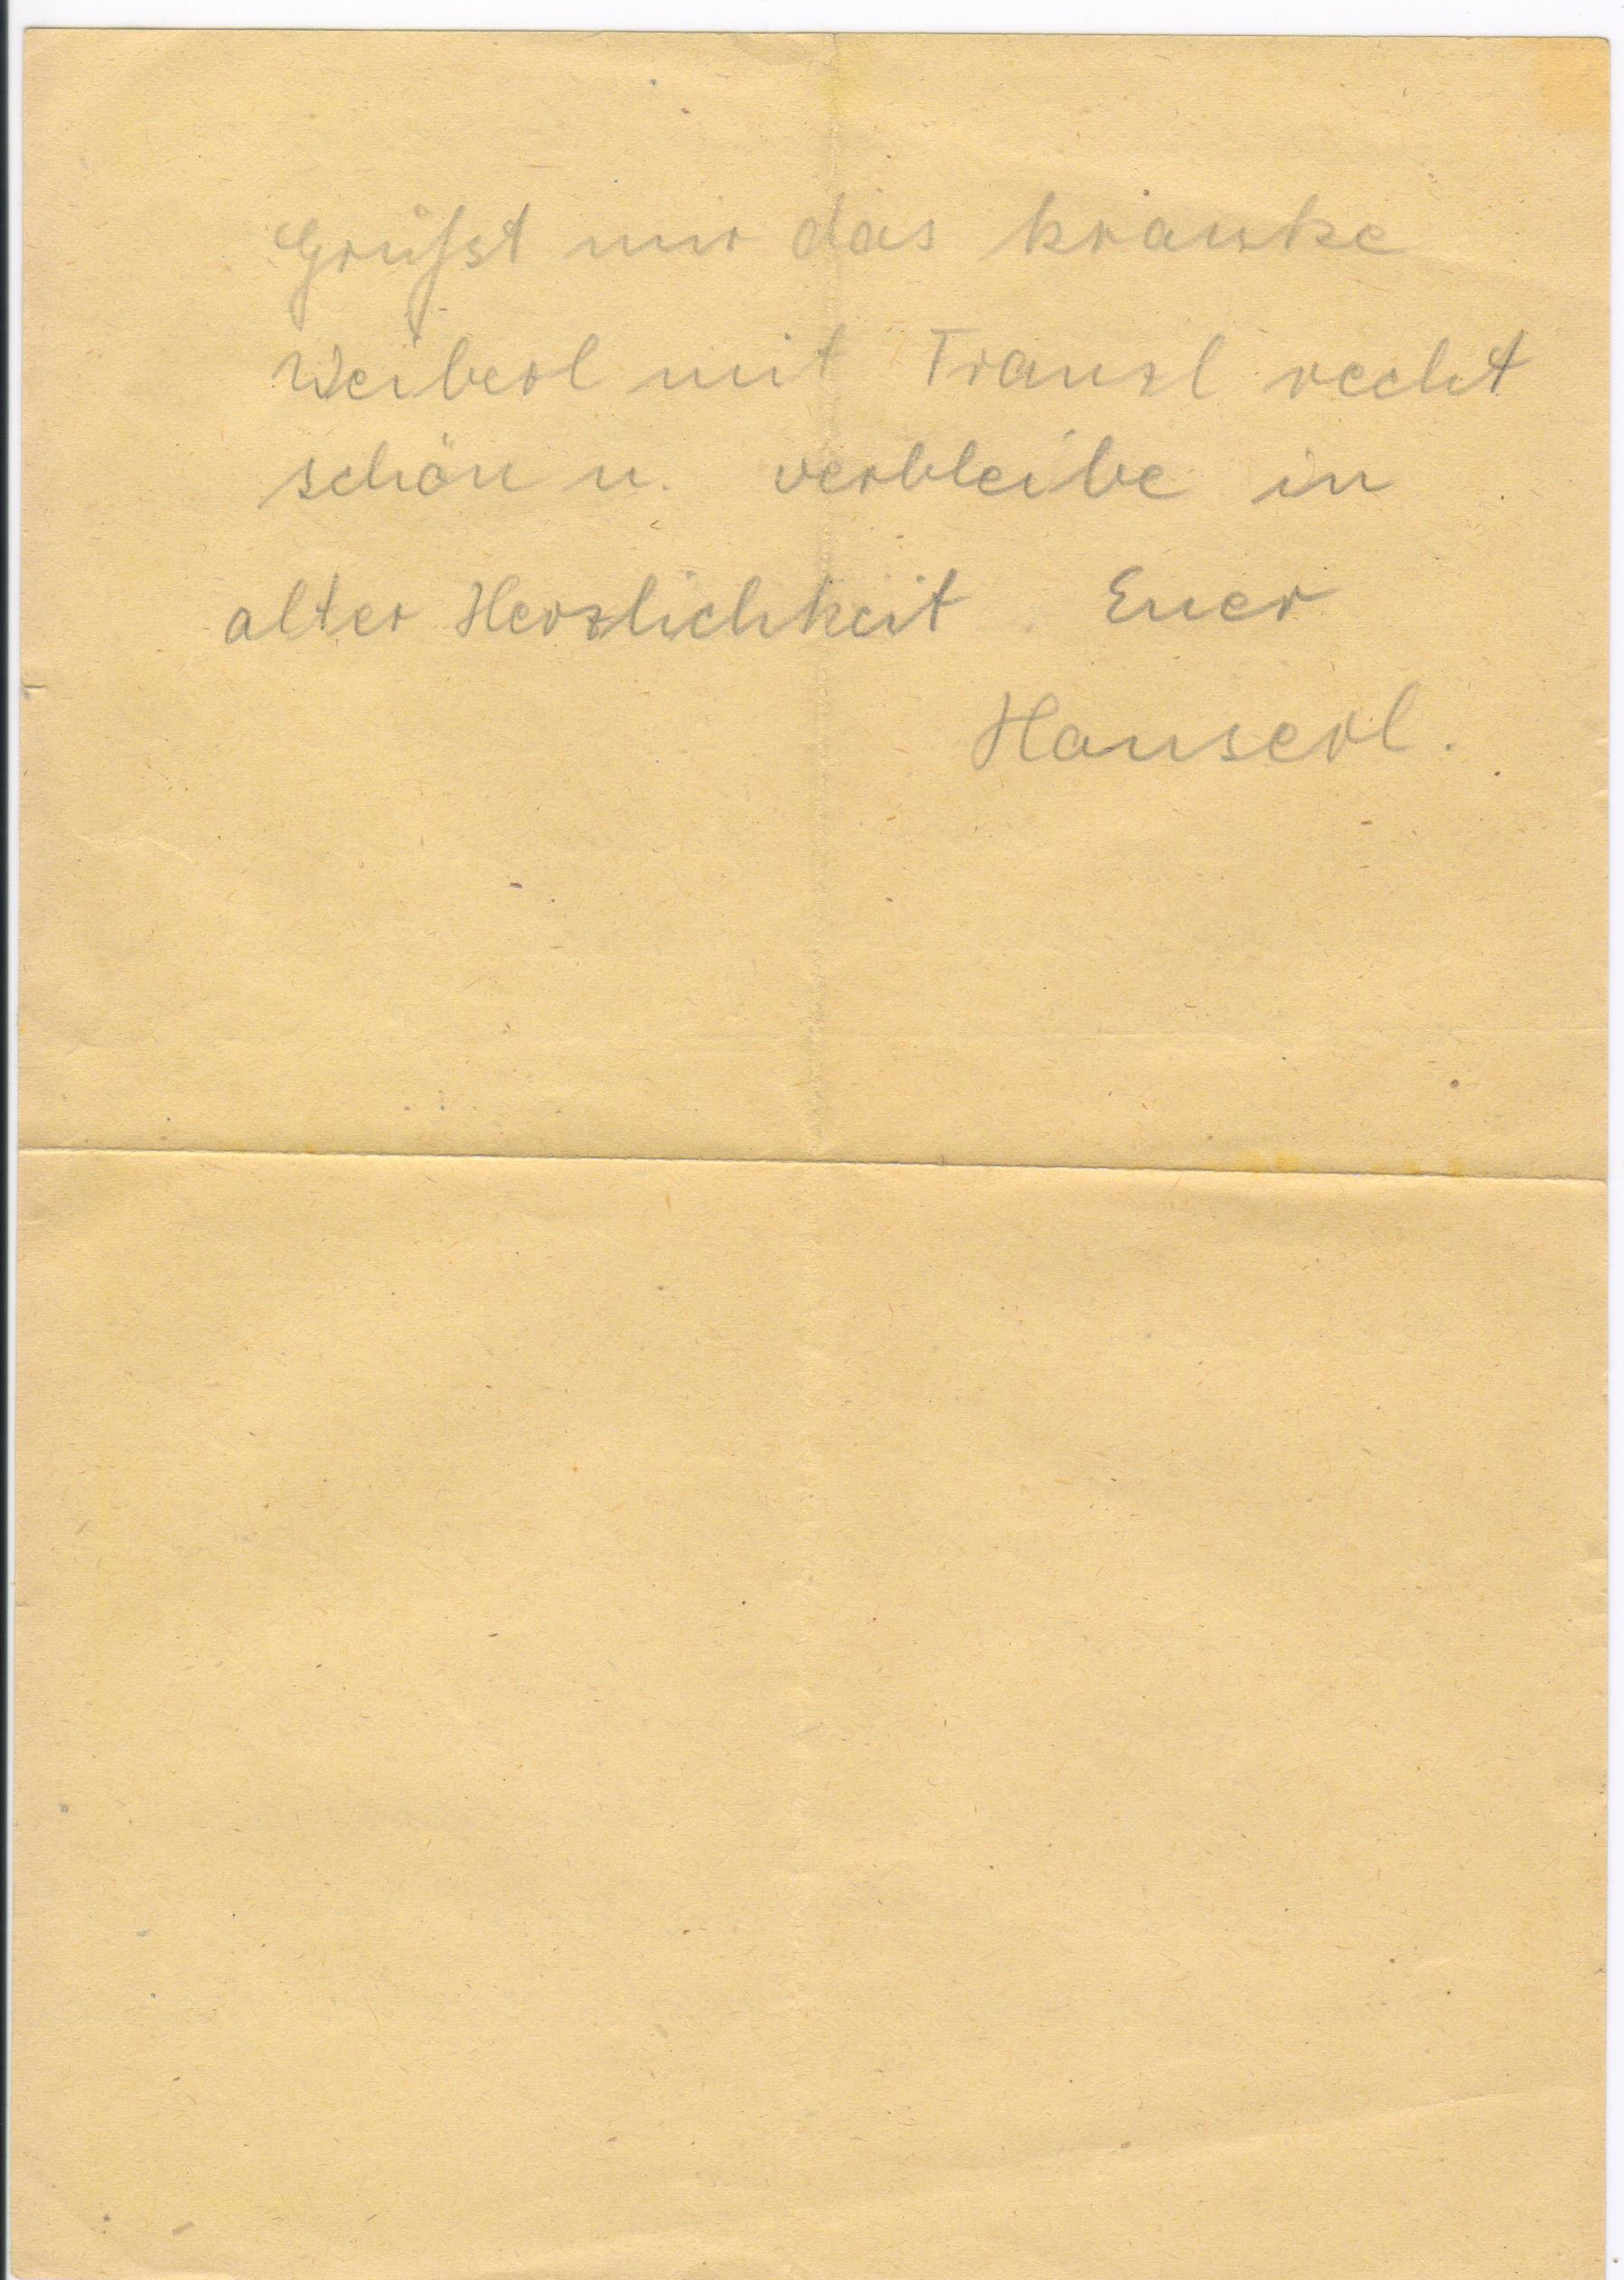 Grüßt mir das kranke
Weiberl mit Franzl recht
schön u. verbleibe in
alter Herzlichkeit Euer
Hanserl.